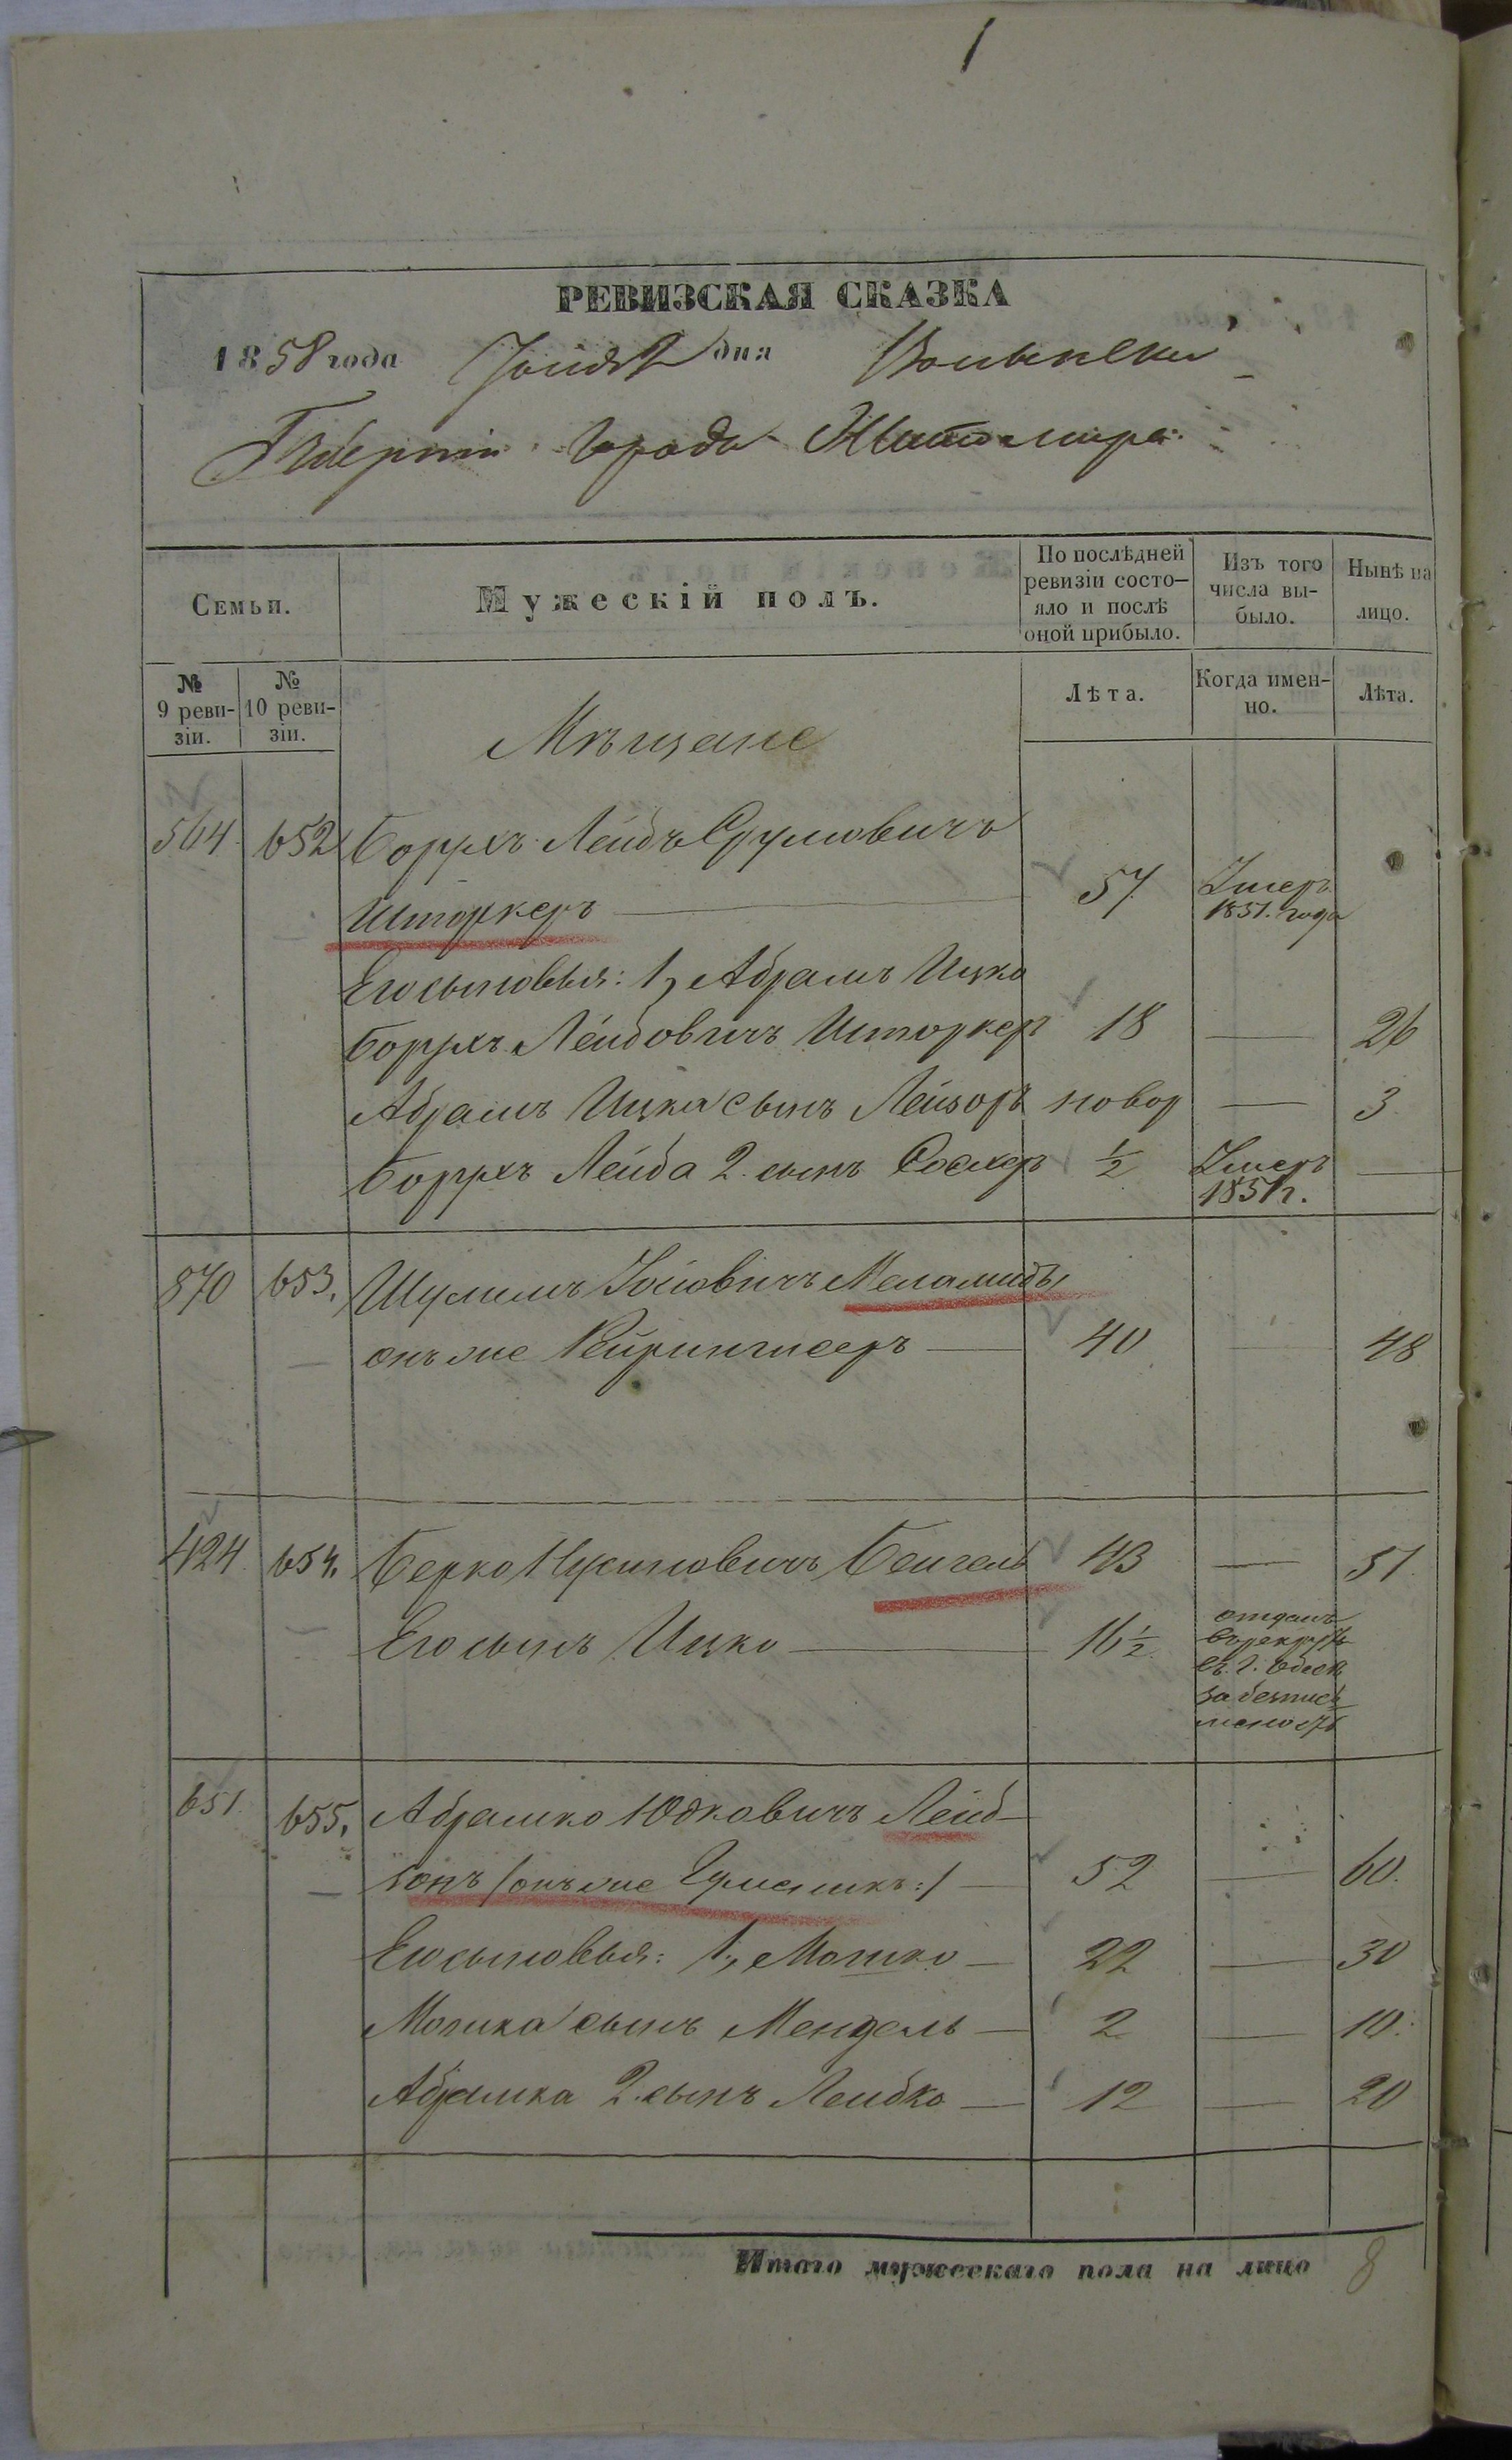 1
РЕВИЗСКАЯ СКАЗКА
1858 года Іюня 2 дня Волынской
Губерніи города Житомира
Семьи.
Мужескій полъ.
По послѣдней ревизіи состо-яло и послѣ оной прибыло.
Изъ того числа вы-было.
Нынѣ на лицо.
№ 9 реви-зіи.
№ 10 реви-зіи.
Лѣта.
Когда имен-но.
Лѣта.
Мѣщане
564 652 Борухъ Лейбъ Сруловичъ
Шторкеръ 57 Умеръ 1851. года
Его сыновья: 1, Абрамъ Ицко
Борухъ Лейбовичъ Шторкеръ 18 — 26
Абрамъ Ицка сынъ Лейзоръ новор — 3
Борухъ Лейба 2. сынъ 1/2 Умеръ 1851г. —
870 653. Шулимъ Іосіовичъ Меламидъ
онъ же 40 — 48
424 654. Берко Нусиновичъ Бенгель 43 — 51
Его сынъ Ицко — 16 1/2 отданъ
въ рекруты
въ г. Одесѣ
за безпись
менность
651. 655. Абрамко Юдковичъ Лейб-
зонъ /онъ же :/ — 52 — 60.
Его сыновья: 1, Мошко — 22 — 30
Мошка сынъ Мендель — 2 — 10.
Абрамка 2. сынъ Лейбко — 12 — 20
Итого мужескаго пола на лицо 8